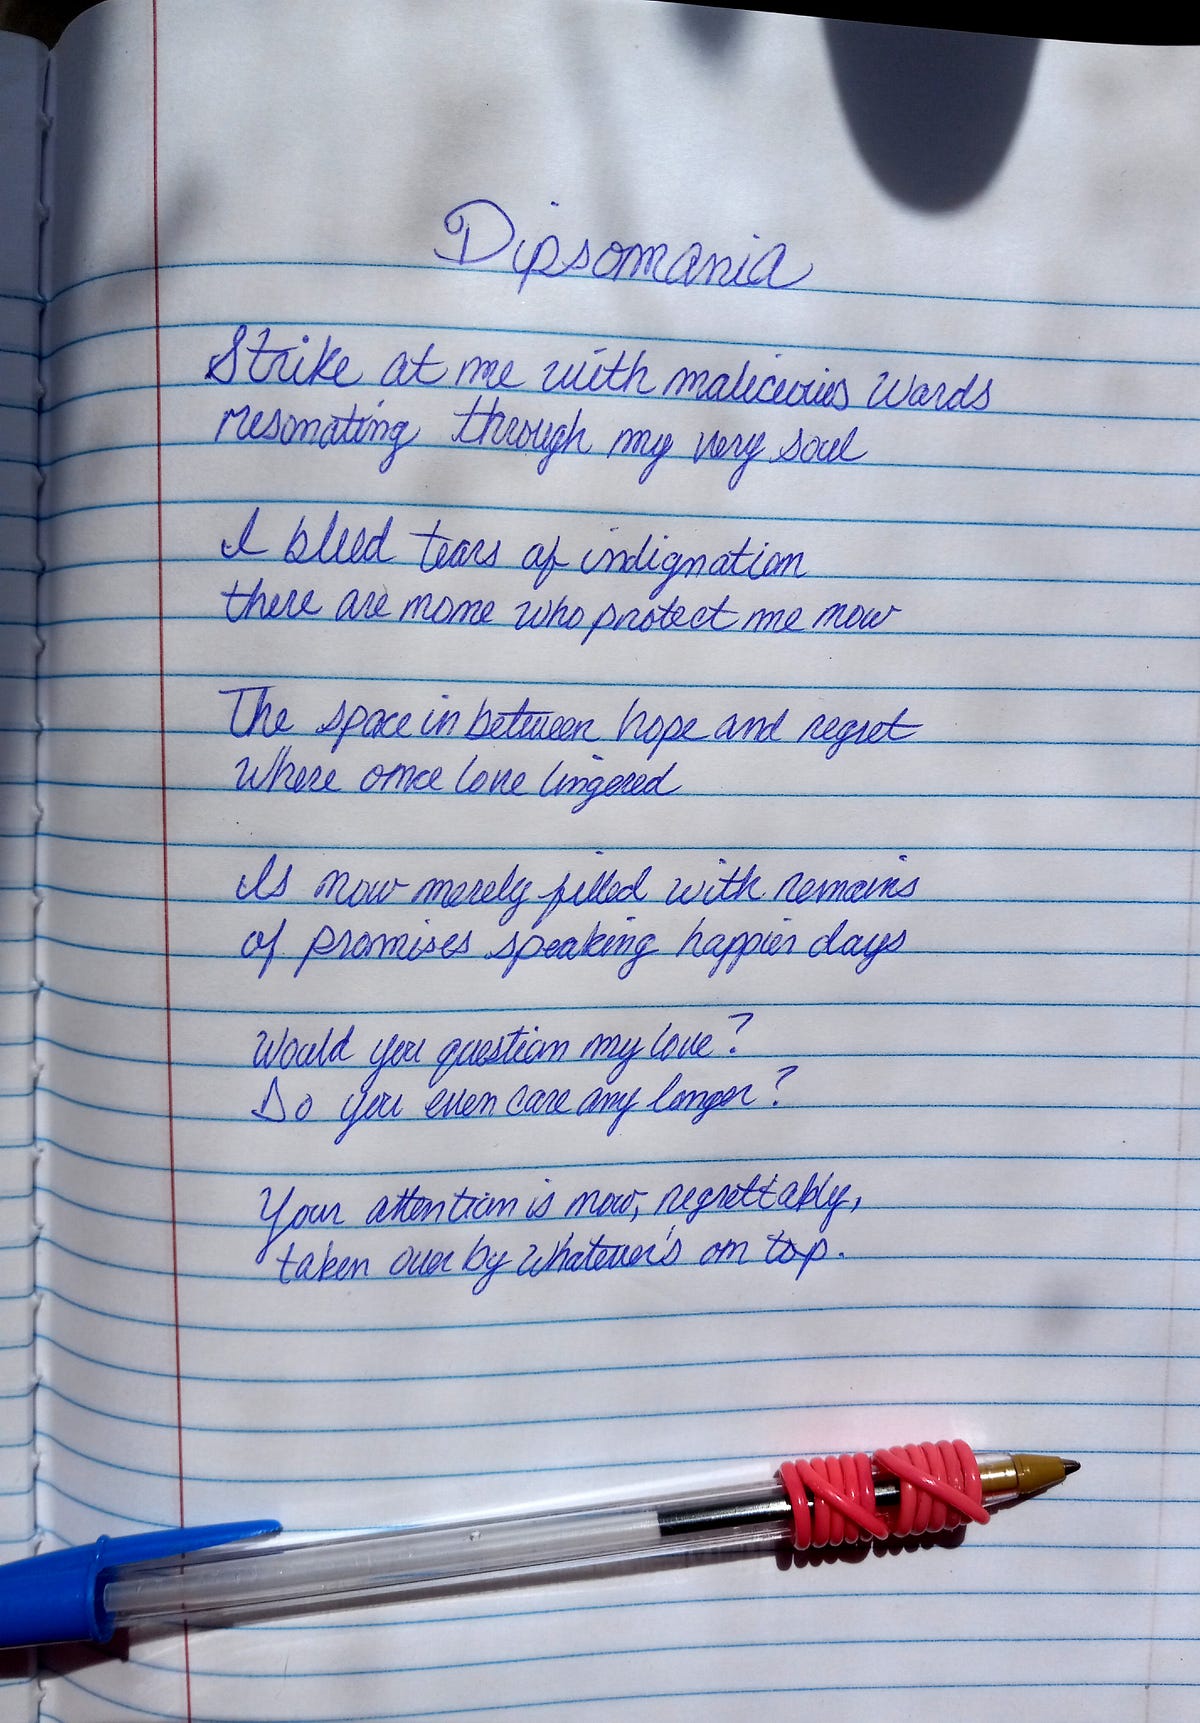 Dipsomania
Strike at me with malicious words
resonating through my very soul
I bleed tears of indignation
there are none who protect me now
The space in between hope and regret
where once love lingered
Is now merely filled with remains
of promises speaking happier days
Would you question my love?
Do you even care any longer?
Your attention is now, regrettably,
taken over by whatever's on top.